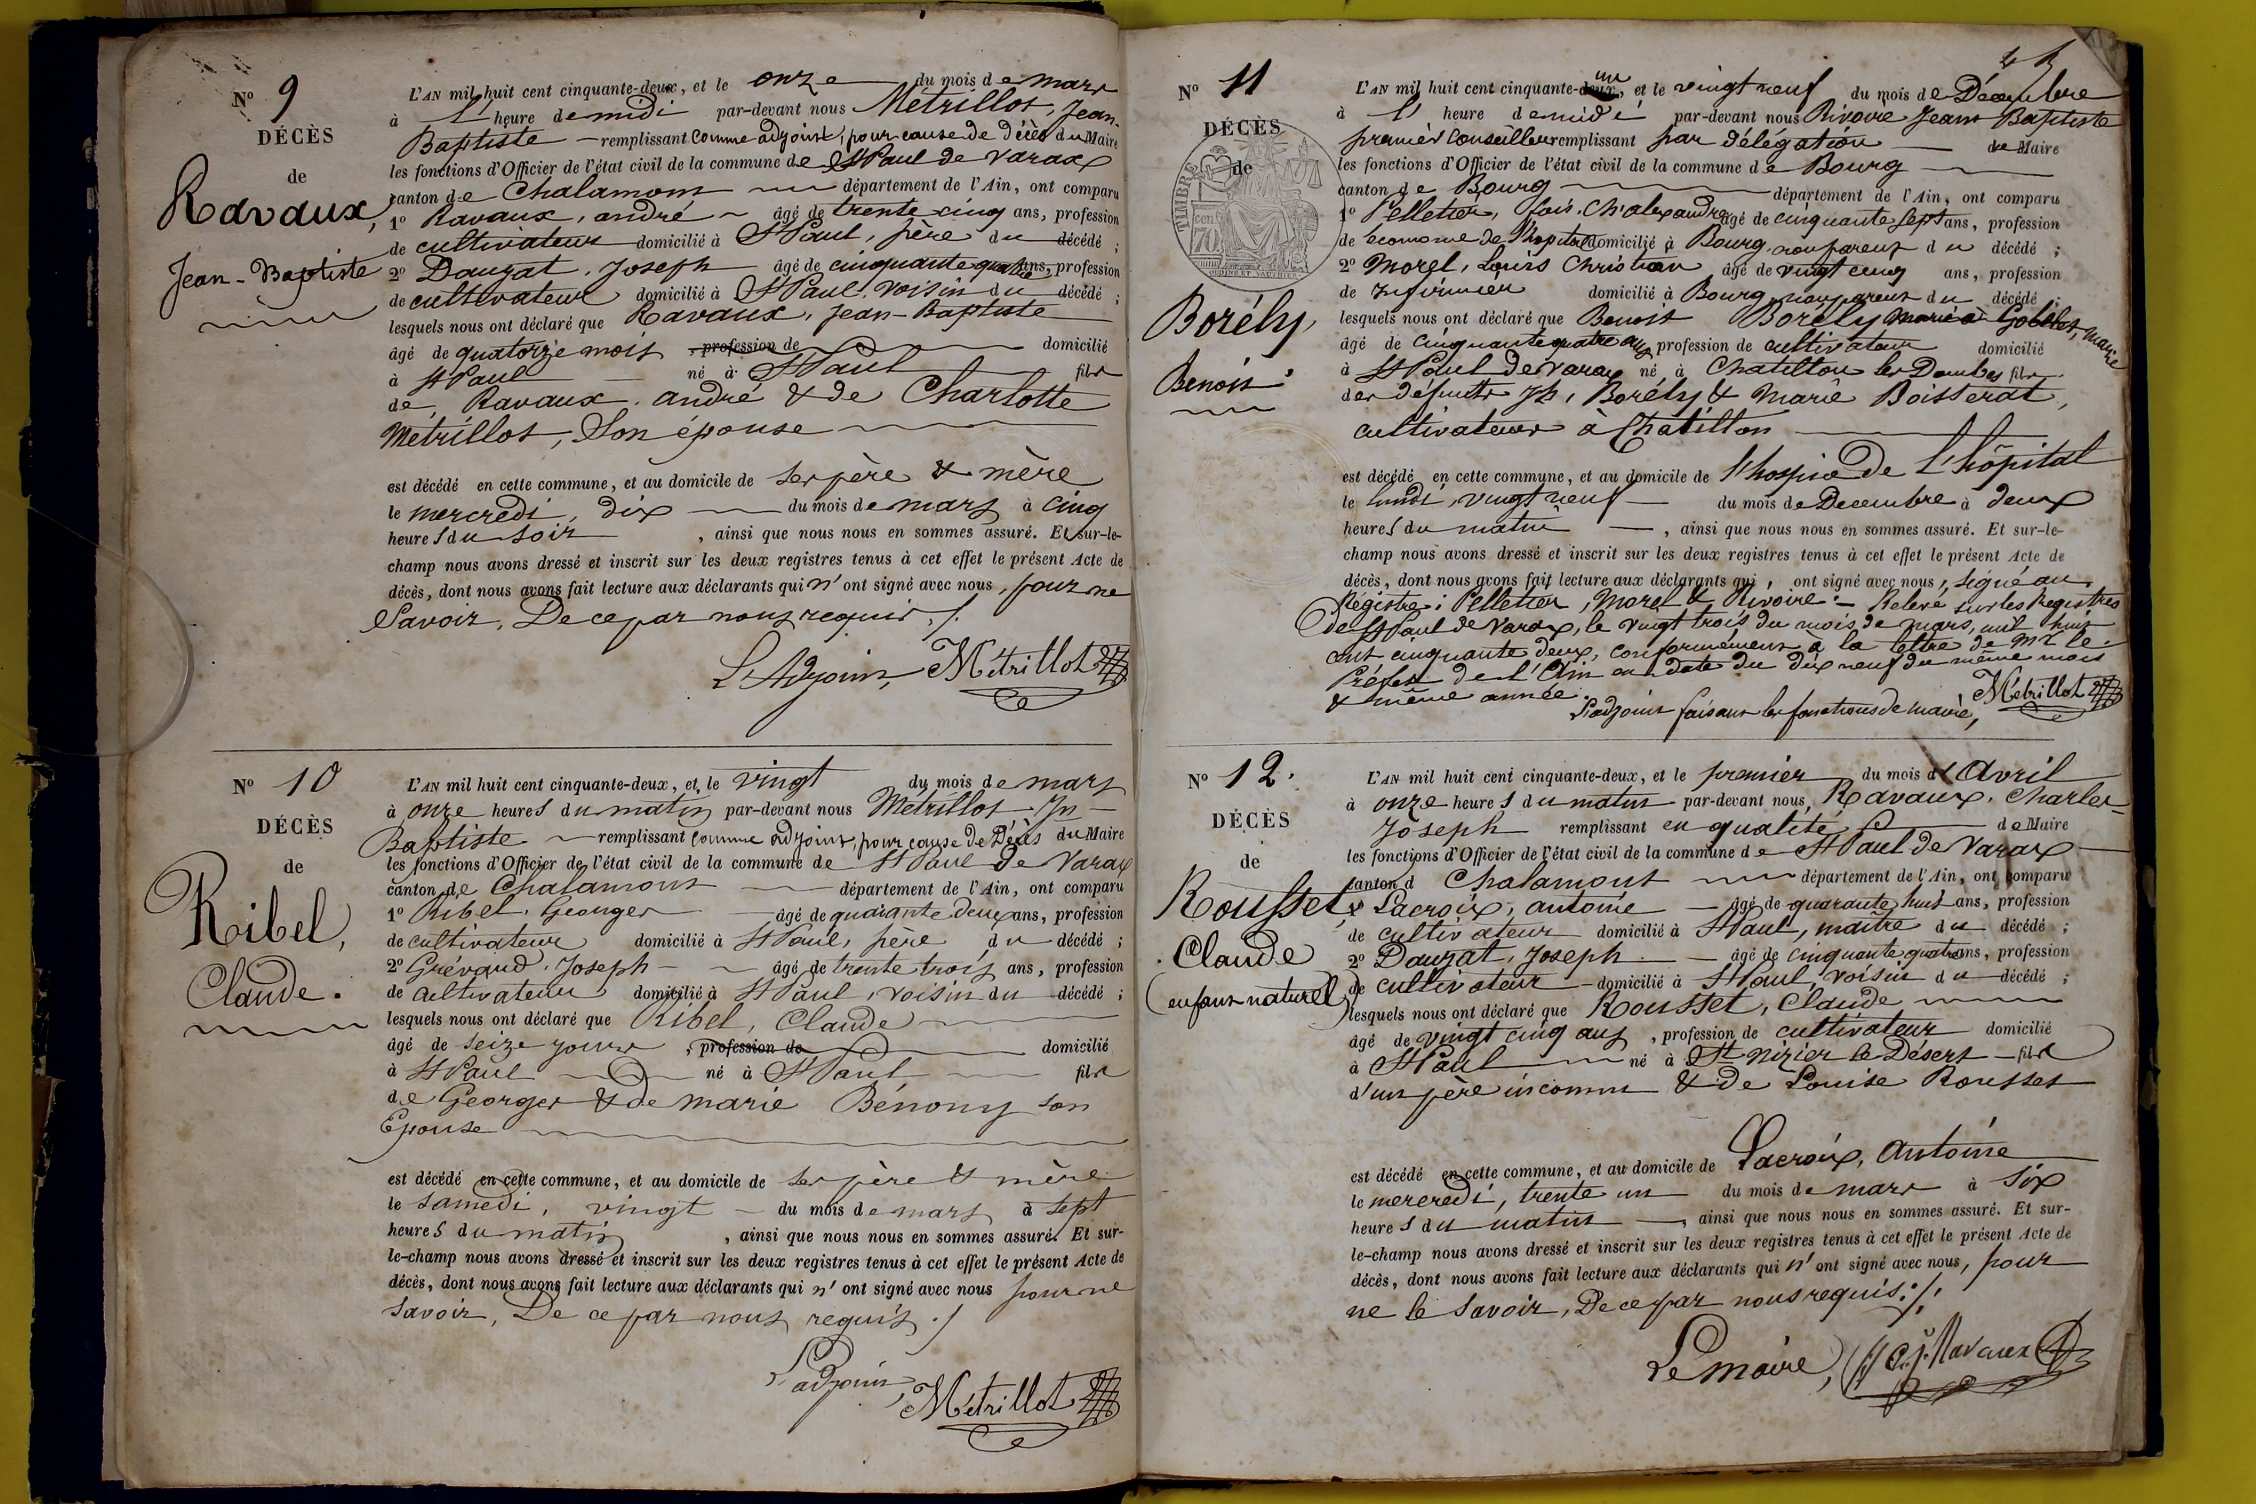 N° 9
DÉCÈS
de
Ravaux,
Jean-Baptiste
L'AN mil huit cent cinquante-deux, et le onze du mois de mars
à l' heure de midi par-devant nous Métrillot, Jean-
Baptiste remplissant comme adjoint, pour cause de décès du Maire
les fonctions d'Officier de l'état civil de la commune de St Paul de Varax
canton de Chalamont département de l'Ain, ont comparu
1° Ravaux, andré âgé de trente cinq ans, profession
de cultivateur domicilié à St Paul, père du décédé ;
2° Dauzat, Joseph âgé de cinquante quatre ans, profession
de cultivateur domicilié à St Paul, voisin du décédé ;
lesquels nous ont déclaré que Ravaux, Jean-Baptiste
âgé de quatorze mois , profession de domicilié
à St Paul né à St Paul fils
de Ravaux, andré & de Charlotte
Métrillot, Son épouse
est décédé en cette commune, et au domicile de ses père & mère
le mercredi, dix du mois de mars à cinq
heures du soir , ainsi que nous nous en sommes assuré. Et sur-le-
champ nous avons dressé et inscrit sur les deux registres tenus à cet effet le présent Acte de
décès, dont nous avons fait lecture aux déclarants qui n' ont signé avec nous, pour ne
Savoir, De ce par nous requis ./.
L'Adjoint, Métrillot
N° 10
DÉCÈS
de
Ribel,
Claude.
L'AN mil huit cent cinquante-deux, et le vingt du mois de mars
à onze heures du matin par-devant nous Métrillot Jn
Baptiste remplissant comme adjoint, pour cause de Décès du Maire
les fonctions d'Officier de l'état civil de la commune de St Paul de Varax
canton de Chalamont département de l'Ain, ont comparu
1° Ribel, Georges âgé de quarante deux ans, profession
de cultivateur domicilié à St Paul, père du décédé ;
2° Grévaud, Joseph âgé de trente trois ans, profession
de cultivateur domicilié à St Paul, voisin du décédé ;
lesquels nous ont déclaré que Ribel, Claude
âgé de seize jours , profession de domicilié
à St Paul né à St Paul fils
de Georges & de marie Bénony son
Epouse
est décédé en cette commune, et au domicile de ses père & mère
le samedi, vingt du mois de mars à sept
heures du matin , ainsi que nous nous en sommes assuré. Et sur-
le-champ nous avons dressé et inscrit sur les deux registres tenus à cet effet le présent Acte de
décès, dont nous avons fait lecture aux déclarants qui n' ont signé avec nous pour ne
savoir, De ce par nous requis ./
L'adjoint, Métrillot
N° 11
DÉCÈS
de
TIMBRE
70
Borély,
Benoit
L'AN mil huit cent cinquante-deux un, et le vingt neuf du mois de Décembre
à l' heure de midi par-devant nous Rivoire Jean Baptiste
premier Conseiller remplissant par délégation de Maire
les fonctions d'Officier de l'état civil de la commune de Bourg
canton de Bourg département de l'Ain, ont comparu
1° Pelletier, fois. Ch. alexandre âgé de cinquante sept ans, profession
de économe de l'hopital domicilié à Bourg, non parent du décédé ;
2° Morel, Louis Christian âgé de vingt cinq ans, profession
de Infirmier domicilié à Bourg, non parent du décédé ;
lesquels nous ont déclaré que Benoit Borély marié à Gobelet, Marie
âgé de cinquante quatre ans, profession de cultivateur domicilié
à St Paul de Varax né à Chatillon les Dombes fils
des défunts Jh, Borély & Marie Boisserat,
cultivateurs à Chatillon
est décédé en cette commune, et au domicile de l'hospice de l'hôpital
le lundi, vingt neuf du mois de Decembre à deux
heures du matin , ainsi que nous nous en sommes assuré. Et sur-le-
champ nous avons dressé et inscrit sur les deux registres tenus à cet effet le présent Acte de
décès, dont nous avons fait lecture aux déclarants qui, ont signé avec nous, signé au
Régistre : Pelletier, Morel & Rivoire. - Relevé sur les Registres
de St Paul de Varax, le vingt trois du mois de mars, mil huit
cent cinquante deux, conformément à la lettre de Mr le
Préfet de l'Ain en date du dix neuf du même mois
& même année.
L'adjoint faisant les fonctions de maire, Métrillot
N° 12.
DÉCÈS
de
Rousset,
Claude
(enfant naturel)
L'AN mil huit cent cinquante-deux, et le premier du mois d'Avril
à onze heures du matin par-devant nous, Ravaux, Charles-
Joseph remplissant en qualité de Maire
les fonctions d'Officier de l'état civil de la commune de St Paul de Varax
canton d Chalamont département de l'Ain, ont comparu
Lacroix, antoine âgé de quarante huit ans, profession
de cultivateur domicilié à St Paul, maître du décédé ;
2° Dauzat, Joseph âgé de cinquante quatre ans, profession
de cultivateur domicilié à St Paul, voisin du décédé ;
lesquels nous ont déclaré que Rousset, Claude
âgé de vingt cinq ans, profession de cultivateur domicilié
à St Paul né à St nizier le Désert fils
d'un père inconnu & de Louise Rousset
est décédé en cette commune, et au domicile de Lacroix, Antoine
le mercredi, trente un du mois de mars à six
heures du matin , ainsi que nous nous en sommes assuré. Et sur-
le-champ nous avons dressé et inscrit sur les deux registres tenus à cet effet le présent Acte de
décès, dont nous avons fait lecture aux déclarants qui n' ont signé avec nous, pour
ne le savoir, De ce par nous requis ./.
Le maire, C. J. Ravaux